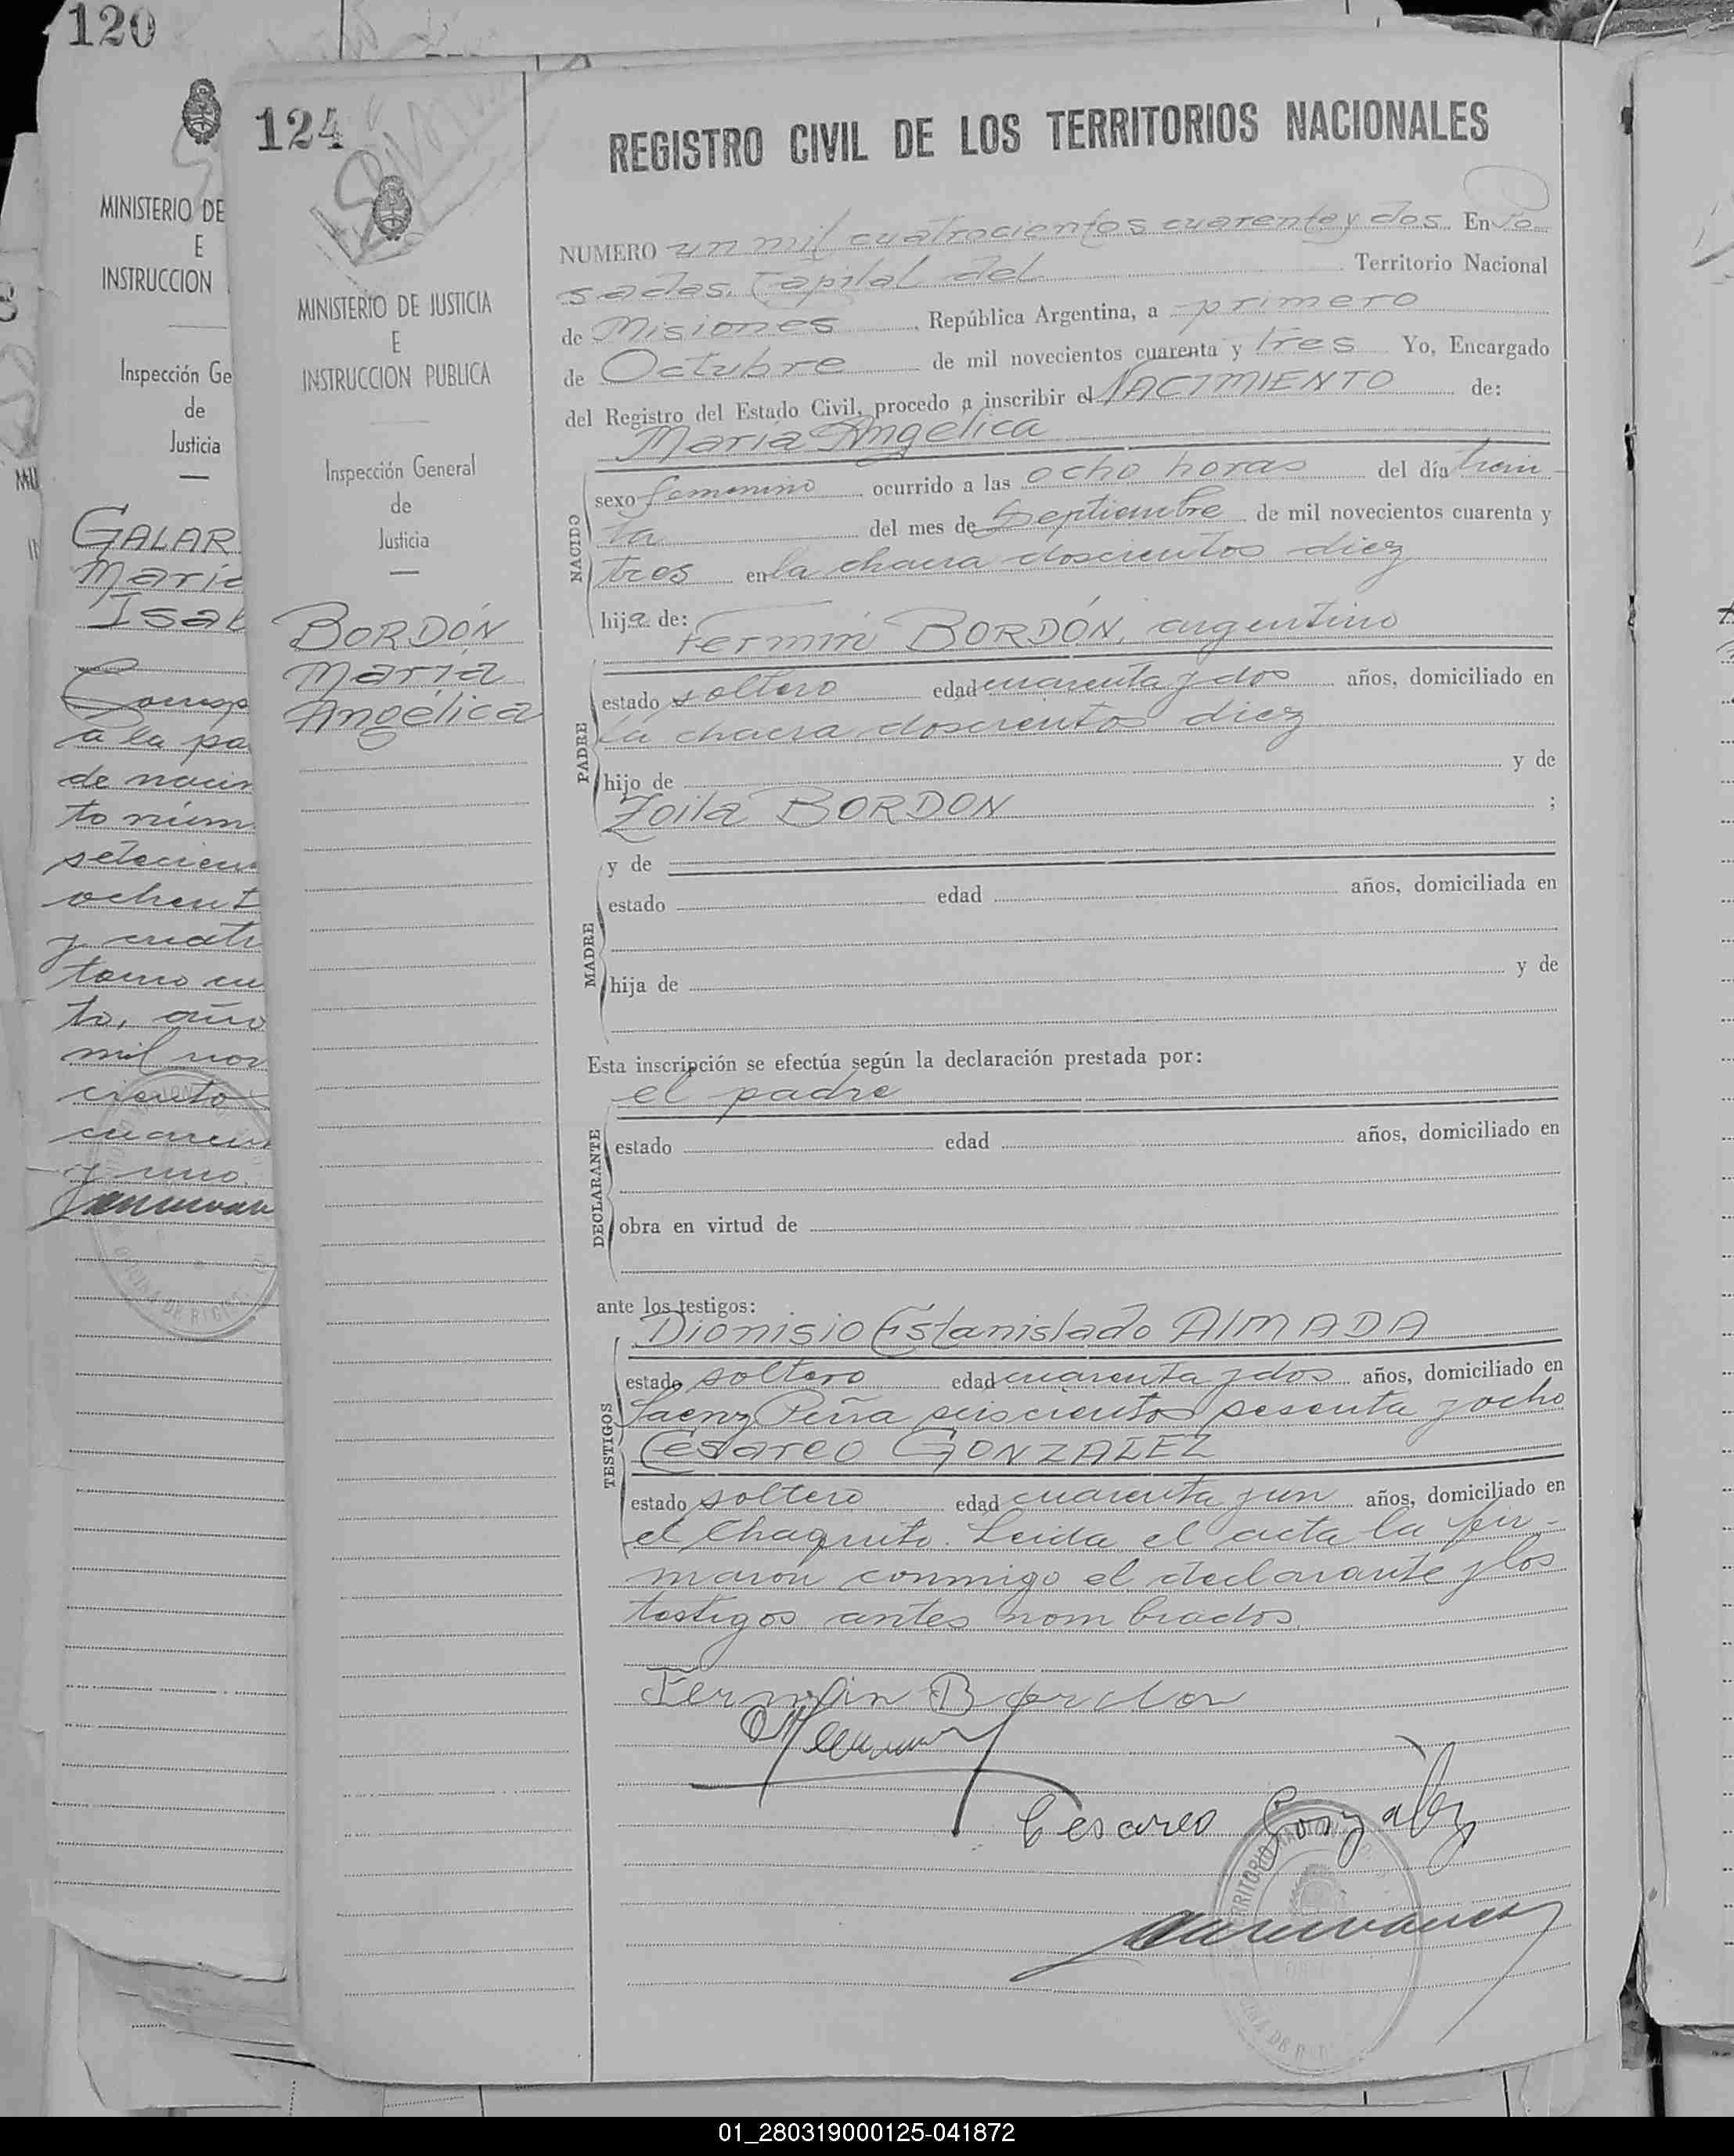 120
MINISTERIO DE
E
INSTRUCCION
Inspección Ge
de
Justicia
GALAR
Maria
Isab
Corresp
a la pa
de nacim
to núm
setecien
ochent
y cuatr
tomo cu
to, año
mil nov
ciento
cuaren
y uno.
124
MINISTERIO DE JUSTICIA
E
INSTRUCCION PUBLICA
Inspección General
de
Justicia
BORDÓN
María
Angélica
REGISTRO CIVIL DE LOS TERRITORIOS NACIONALES
NUMERO un mil cuatrocientos cuarenta y dos. En Po
sadas. Capital del Territorio Nacional
de Misiones, República Argentina, a primero
de Octubre de mil novecientos cuarenta y tres Yo, Encargado
del Registro del Estado Civil, procedo a inscribir el NACIMIENTO de:
María Angélica
NACIDO
sexo femenino ocurrido a las ocho horas del día trein-
ta del mes de Septiembre de mil novecientos cuarenta y
tres en la chacra doscientos diez
hija de:
Fermín BORDÓN, argentino
PADRE
estado soltero edad cuarenta y dos años, domiciliado en
la chacra doscientos diez
hijo de y de
Zoila BORDON ;
MADRE
y de
estado edad años, domiciliada en
hija de y de
Esta inscripción se efectúa según la declaración prestada por:
el padre
DECLARANTE
estado edad años, domiciliado en
obra en virtud de
ante los testigos:
Dionisio Estanislado AlMADA
TESTIGOS
estado soltero edad cuarenta y dos años, domiciliado en
Saenz Peña seiscientos sesenta y ocho
Cesareo GONZALEZ
estado soltero edad cuarenta y un años, domiciliado en
el Chaquito. Leida el acta la fir-
maron conmigo el declarante y los
testigos antes nombrados.
Fermin Bordon
Cesareo Gonzalez
01_280319000125-041872